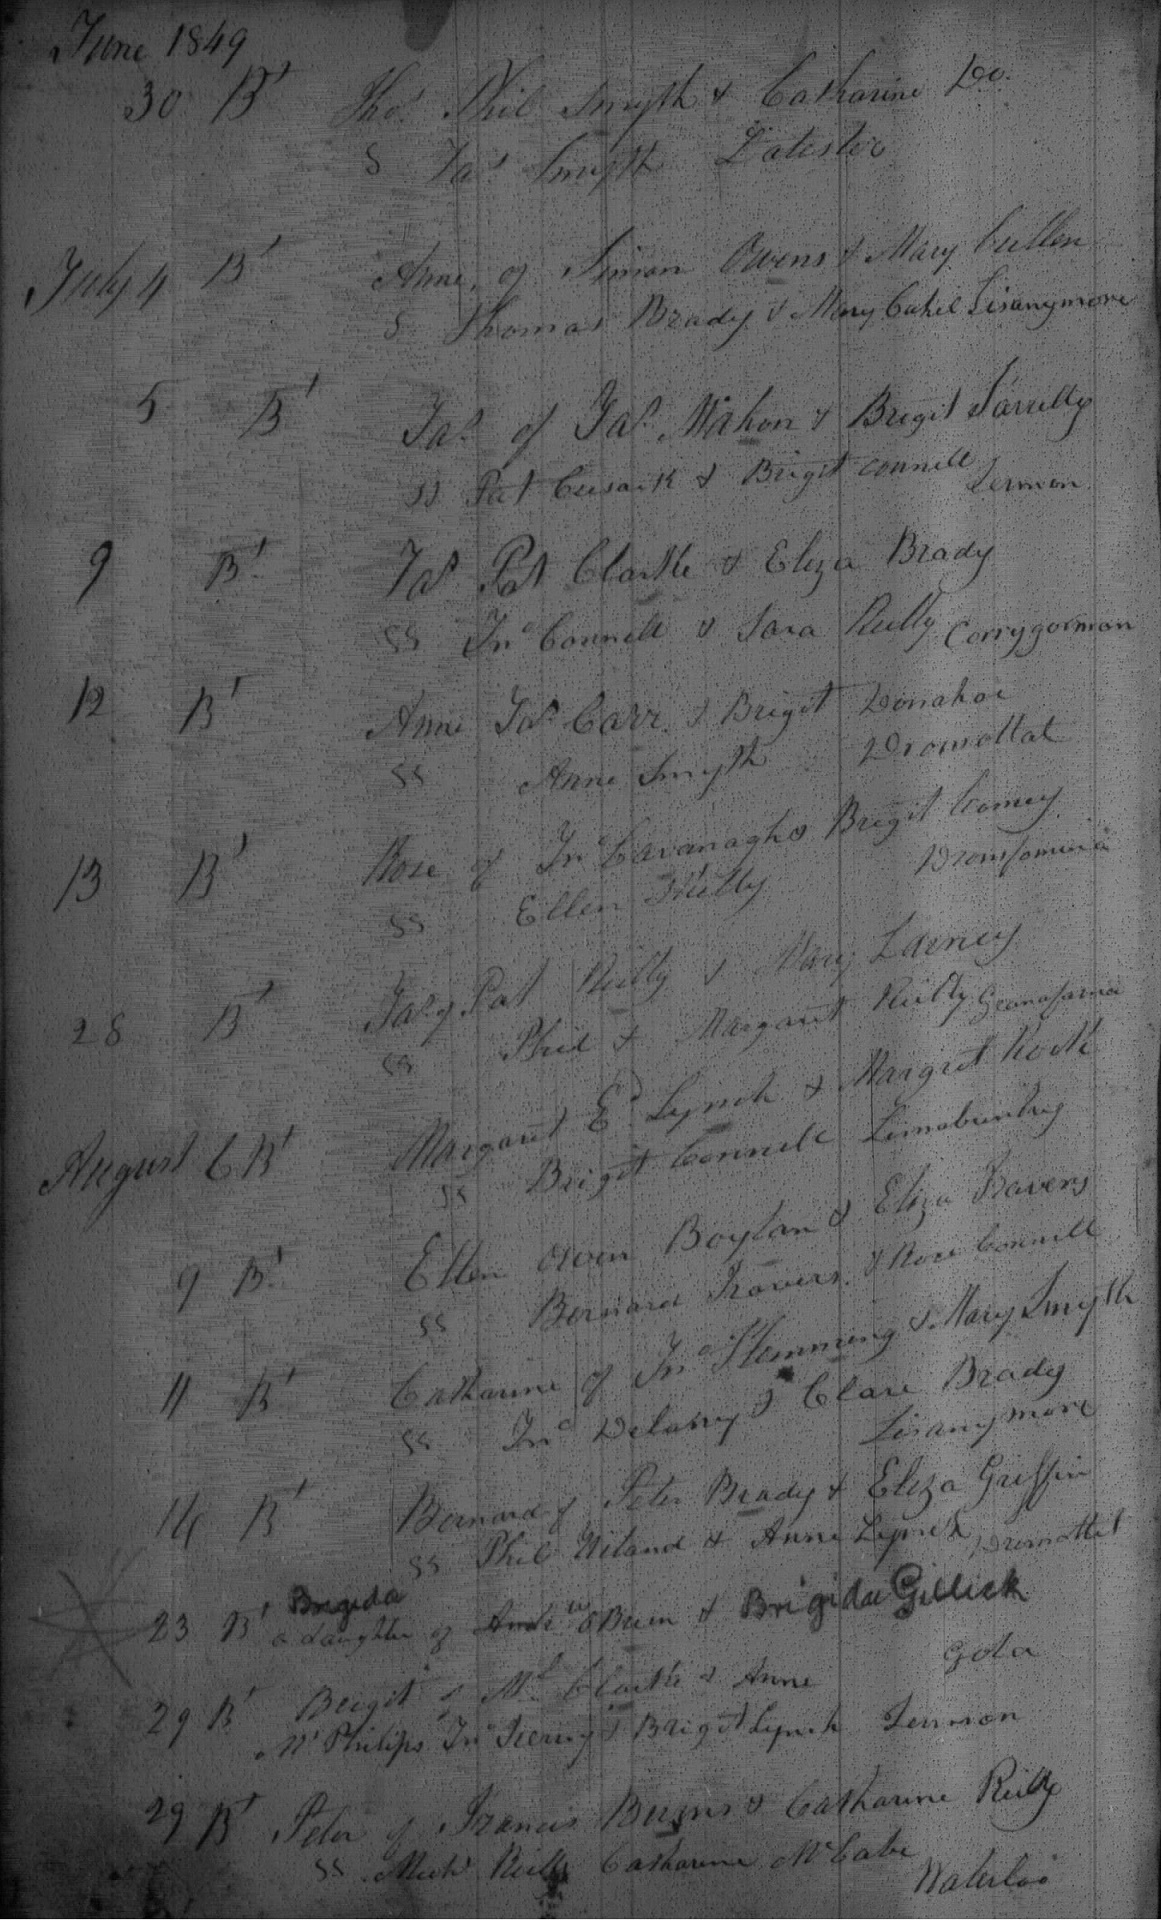 June 1849
30 Bt Thos. Phil Smyth & Catharine Do.
S Jas Smyth
July 4 Bt Anne, of Simon Owens & Mary Cullen
S Thomas Brady & Mary Cahil Lisanymore
5 Bt Jas. of Jas. Mahon & Bregit Farrelly
SS Pat Cusack & Briget Connell
Lermon
9 Bt. Jas Pat Clarke & Eliza Brady
SS Jno Connell & Sara Reilly Corrygorman
12 Bt Anne Jas Carr & Breget Donahoe
SS Anne Smyth Dromottat
13 Bt Rose of Jno Cavanagh & Bregit
SS Ellen Reilly
28 Bt Jas. of Pat Reilly & Mary Larney
SS Phil & Margaret Reilly
August 6 Bt Margaret Ed. Lynch & Margret
SS Briget Connell
9 Bt. Ellen Owen Boylan & Eliza Travers
SS Bernard Travers & Rose Connell
11 Bt Catharine of Jno Flemming & Mary Smyth
SS Jno Delany & Clare Brady
Lisanymore
14 Bt Bernard of Peter Brady & Eliza Griffin
SS Phil & Anne Lynch Dromottat
Brigida
23 Bt a daughter of Andw OBrien & Brigida Gillick
Gola
29 Bt Bregit of Ml Clarke & Anne
Mc Philips Jno & Briget Lynch Lermon
29 Bt Peter of Francis Burns & Catharine Reilly
SS Michl Reilly Catharine McCabe
Waterloo